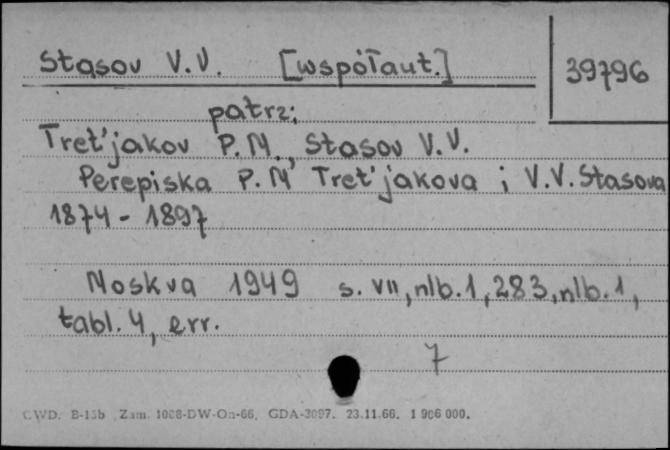 Stasov V.V. [współaut.]
39796
patrz:
Tret'jakov P.M., Stasov V.V.
Perepiska P.M Tret'jakova i V.V. Stasova
1874 - 1897
Moskva 1949 s. VII, nlb. 1, 283, nlb. 1,
tabl. 4, err.
7
CWD. B-15b Zam. 1088-DW-On-66. GDA-3097. 23.11.66. 1 906 000.